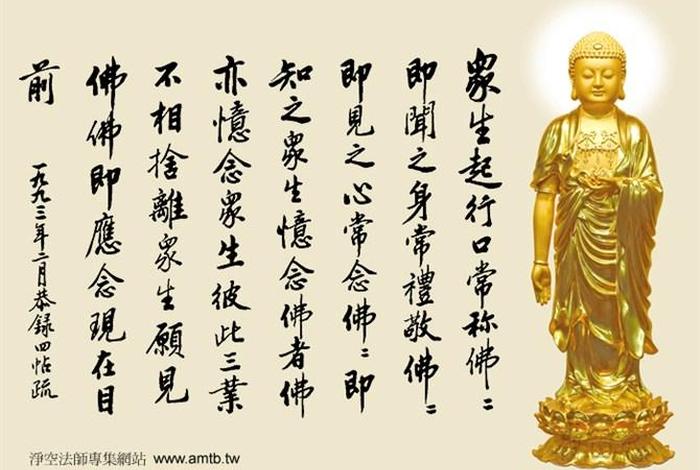 眾生起行口常称佛〻
即聞之身常禮敬佛〻
即見之心常念佛〻即
知之眾生憶念佛者佛
亦憶念眾生彼此三業
不相捨離眾生願見
佛佛即應念現在目
前
一九九三年二月恭録四帖疏
淨空法師專集網站 www.amtb.tw